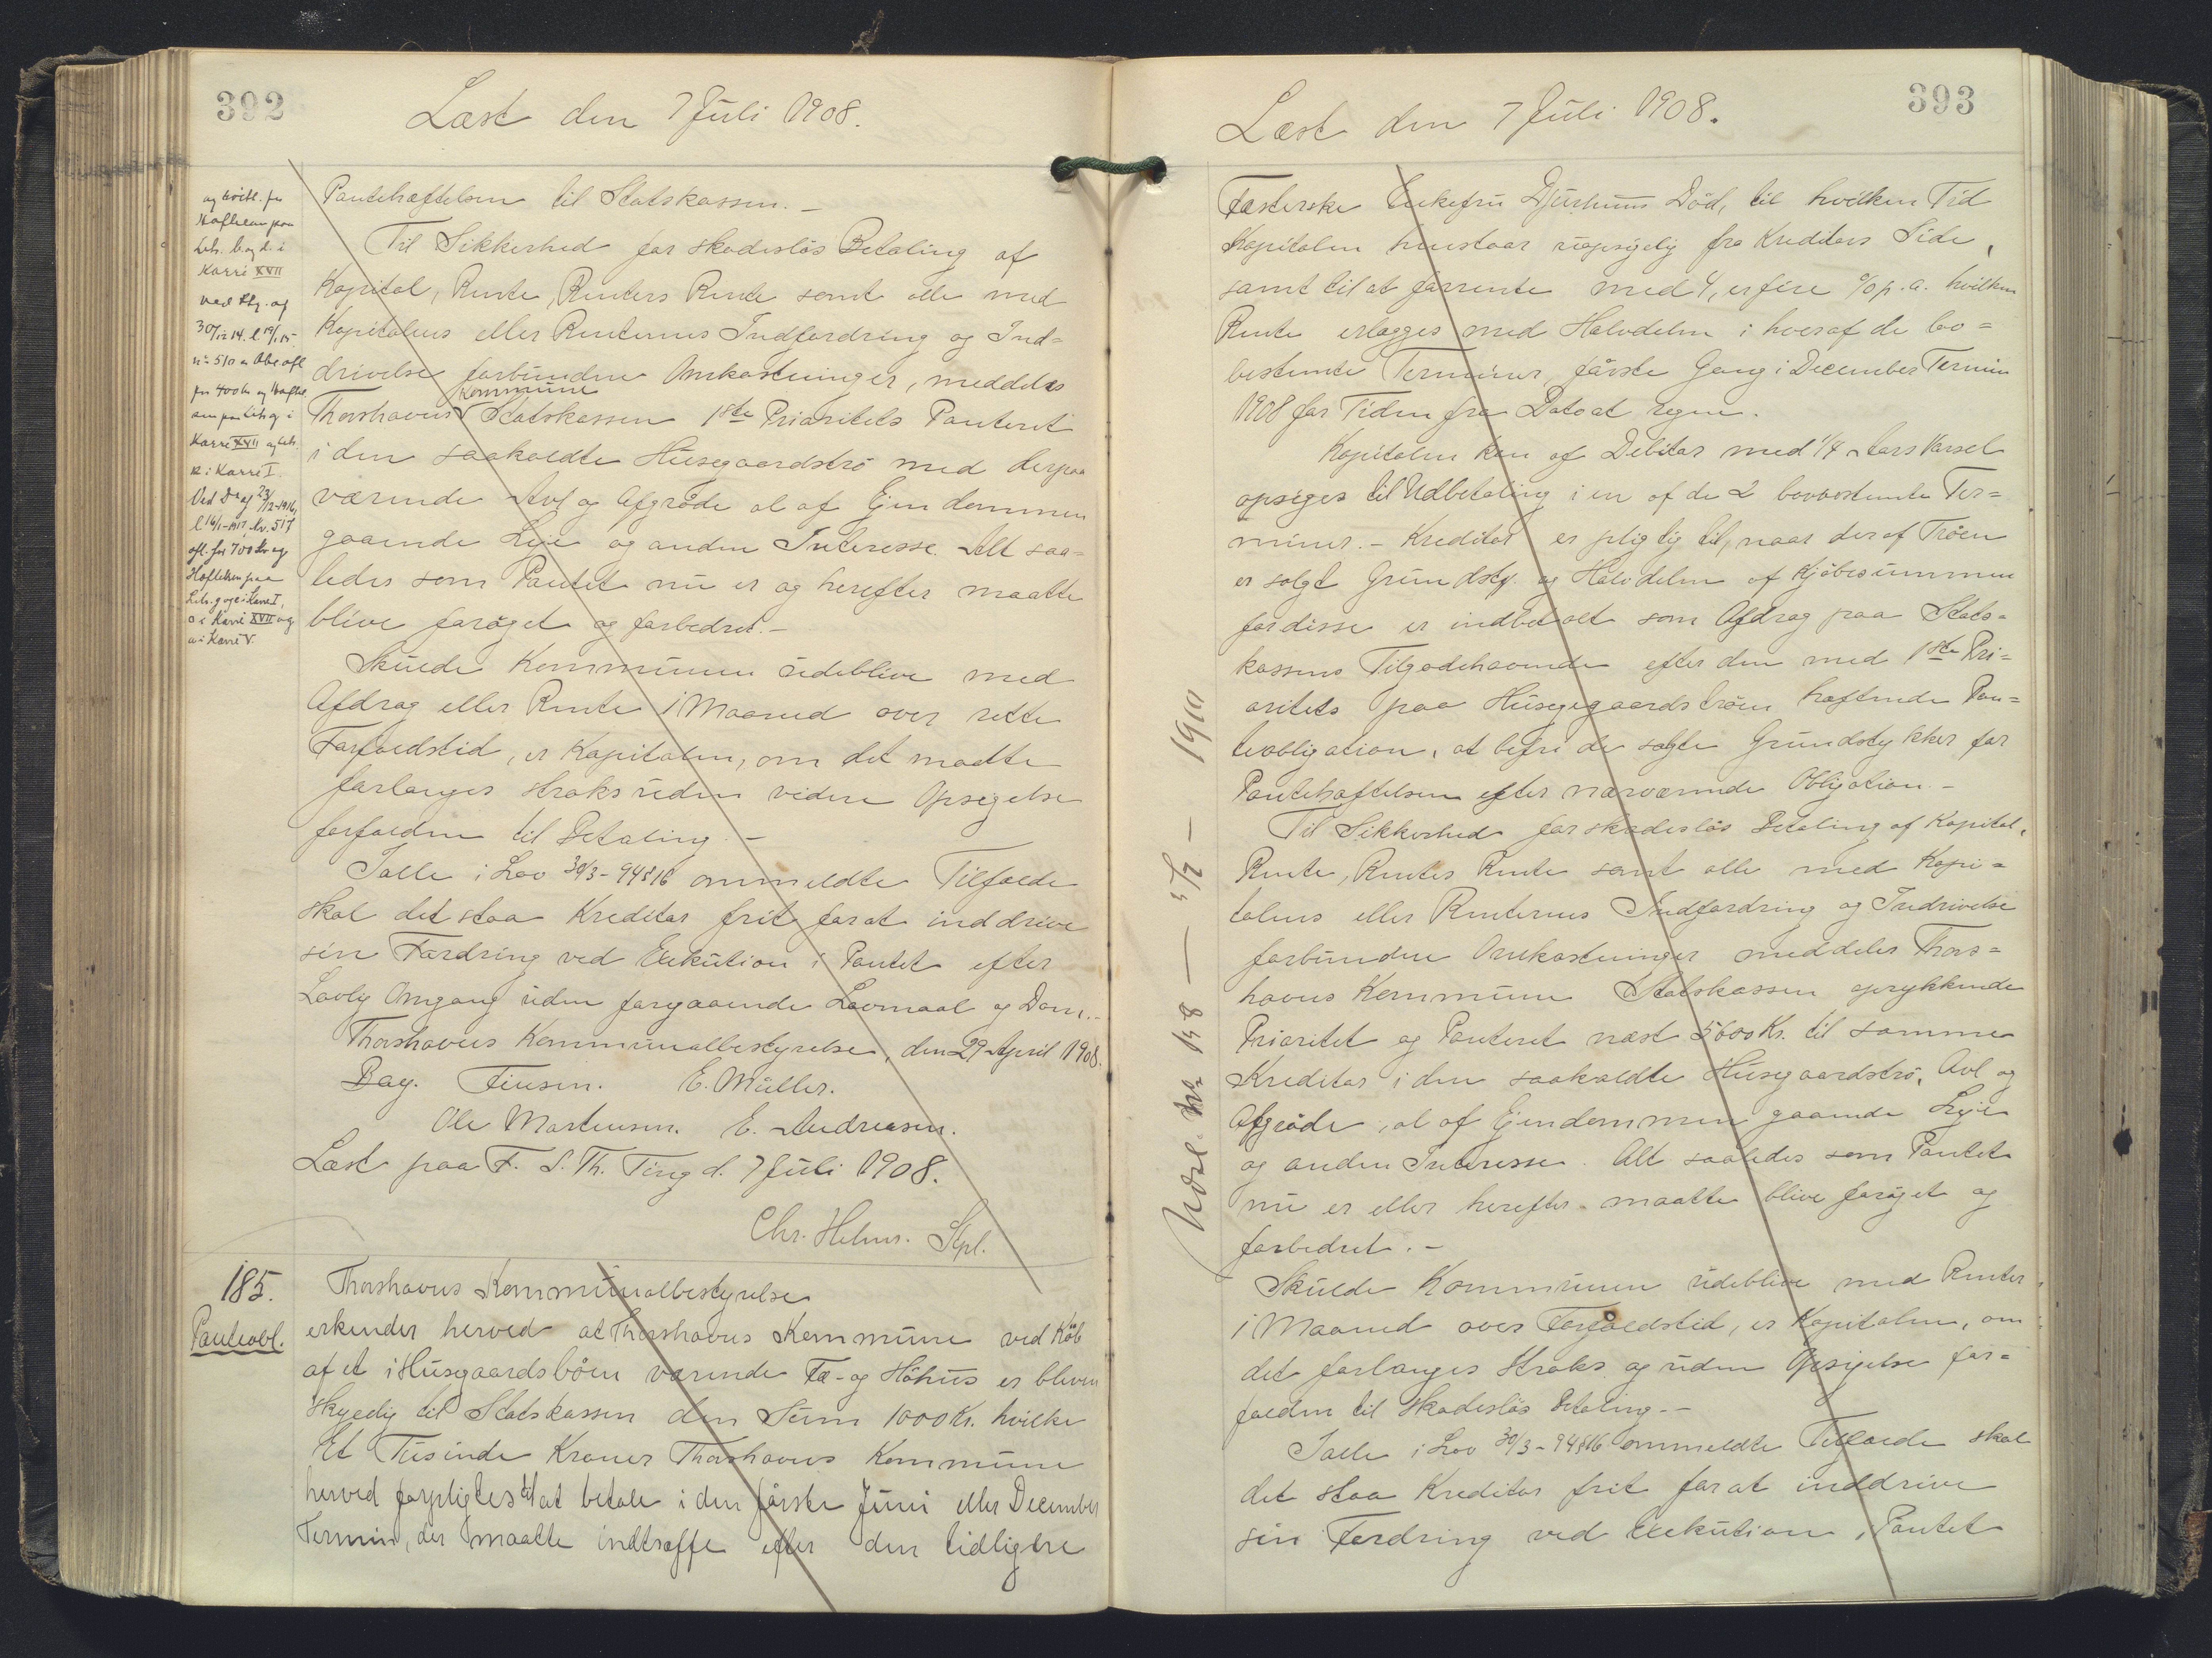 392
Læst den 7 Juli 1908.
og kvitt. for
Hæftelsen paa
Litr. b og d i
Karré XVII
ved Ptg. af
30/12 14. l 19/1 15
n: 510 a Obl. afl
for 400 Kr og Hæftel
sen paa Litr. g i
Karré XVII og Litr.
k i Karré I.
Ved Do af 23/12-1916,
l 16/1-1917, Nr. 517
afl. for 700 Kr og
Hæftelsen paa
Litr. g og i Karré I,
o i Karré XVII og
a i Karré V.
Pantehæftelsen til Statskassen. -
Til Sikkerhed for skadeslös Betaling af
Kapital, Rente, Renters Rente samt alle med
Kapitalens eller Renternes Indfordring og Ind=
drivelse forbundne Omkostninger, meddeles
Thorshavns Kommune Statskassen 1ste Prioritets Panteret
i den saakaldte Husegaardströ med derpaa
værende Avl og Afgröde al af Ejendommen
gaaende Leje og anden Interesse. Alt saa=
ledes som Pantet nu er og herefter maatte
blive foröget og forbedret. -
Skulde Kommunen udeblive med
Afdrag eller Rente 1 Maaned over rette
Forfaldstid, er Kapitalen, om det maatte
forlanges straks uden videre Opsigelse
forfalden til Betaling. -
I alle i Lov 30/3-94 § 16 ommeldte Tilfælde
skal det staa Kreditor frit for at inddrive
sin Fordring ved Exekution i Pantet efter
Lovlig Omgang uden forgaaende Lovmaal og Dom. -
Thorshavns Kommunalbestyrelse, den 29 April 1908.
Bay. Finsen. E. Müller.
Ole Mortensen. E. Andreasen.
Læst paa F. S. Th. Ting d. 7 Juli 1908.
Chr. Helms. Kpl.
185.
Panteobl.
Thorshavns Kommunalbestyrelse
erkender herved at Thorshavns Kommune ved Köb
af et i Husegaardsböen værende Fæ- og Höhus er bleven
skyldig til Statskassen den Sum 1000 Kr. hvilke
Et Tusinde Kroner Thorshavns Kommune
herved forpligtes til at betale i den förste Juni eller December
Termin, der maatte indtræffe efter den tidligere
393
Læst den 7 Juli 1908.
Fæsterske Enkefru Djurhuus Död, til hvilken Tid
Kapitalen henstaar uopsigelig fra Kreditors Side,
samt til at forrente med 4, er fire % p. a. hvilken
Rente erlægges med Halvdelen i hver af de lov=
bestemte Terminer, förste Gang i December Termin
1908 for Tiden fra Dato at regne.
Kapitalen kan af Debitor med 1/4 Aars Varsel
opsiges til Udbetaling i en af de 2 lovbestemte Ter=
miner. - Kreditor er pligtig til, naar der af Tröen
er solgt Grundstk. og Halvdelen af Kjöbesummen
for disse er indbetalt som Afdrag paa Stats=
kassens Tilgodehavende efter den med 1ste Pri=
oritets paa Husegaardströen hæftende Pan=
teobligation, at befri de solgte Grundstykker for
Pantehæftelsen efter nærværende Obligation. -
Til Sikkerhed for skadeslös Betaling af Kapital,
Rente, Renters Rente samt alle med Kapi=
talens eller Renternes Indfordring og Inddrivelse
forbundne Omkostninger meddeler Thors=
havns Kommune Statskassen oprykkende
Prioritet og Panteret næst 5600 Kr. til samme
Kreditor i den saakaldte Husegaardströ, Avl og
Afgröde, al af Ejendommen gaaende Leje
og anden Interesse. Alt saaledes som Pantet
nu er eller herefter maatte blive foröget og
forbedret. -
Skulde Kommunen udeblive med Renter
1 Maaned over Forfaldstid, er Kapitalen, om
det forlanges straks og uden Opsigelse for=
falden til skadeslös Betaling. -
I alle i Lov 30/3-94 § 16 ommeldte Tilfælde skal
det staa Kreditor frit for at inddrive
sin Fordring ved Exekution i Pantet
Udsl. No 158 - 5/7 - 1910